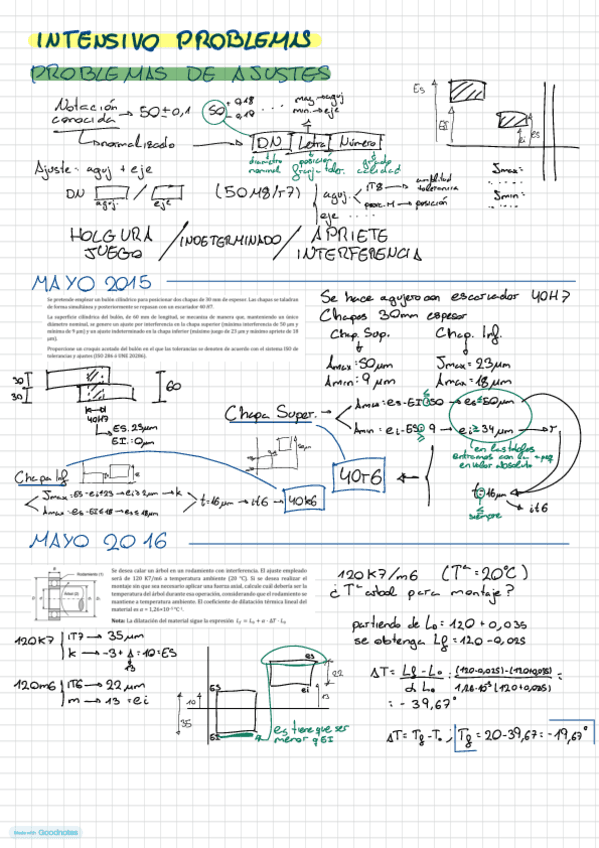 INTENSIVO PROBLEMAS
PROBLEMAS DE AJUSTES
Notación conocida → 50±0,1
50 +0,18 -0,19
may → aguj
min → eje
normalizado → DN Letra Número
diámetro nominal
posición
grado calidad
Ajuste = aguj + eje
DN / (50M8/r7)
aguj.
eje
aguj. IT8 → amplitud tolerancia
posic. M → posición
eje
ES
EI
es
ei
Jmax=
Jmin=
HOLGURA JUEGO / INDETERMINADO / APRIETE INTERFERENCIA
MAYO 2015
Se pretende emplear un bulón cilíndrico para posicionar dos chapas de 30 mm de espesor. Las chapas se taladran
de forma simultánea y posteriormente se repasan con un escariador 40 H7.
La superficie cilíndrica del bulón, de 60 mm de longitud, se mecaniza de manera que, manteniendo un único
diámetro nominal, se genere un ajuste por interferencia en la chapa superior (máxima interferencia de 50 μm y
mínima de 9 μm) y un ajuste indeterminado en la chapa inferior (máximo juego de 23 μm y máximo apriete de 18
μm).
Proporcione un croquis acotado del bulón en el que las tolerancias se denoten de acuerdo con el sistema ISO de
tolerancias y ajustes (ISO 286 ó UNE 20286).
Se hace agujero con escariador 40H7
Chapas 30mm espesor
Chap. Sup.
Chap. Inf.
Amax=50μm
Amin=9μm
Jmax=23μm
Amax=18μm
30
30
60
40H7
ES.25μm
EI.=0μm
Chapa Super.
Amax=es-EI≤50 → es≤50μm
Amin=ei-ES≥9 → ei≥34μm → r
en las tablas entramos con
en valor absoluto
40r6
t≥16μm
it6
siempre
Chapa Inf
Jmax=ES-ei≤23 → ei≥2μm → k
Amax=es-EI≤18 → es≤18μm
t=16μm → it6 → 40k6
MAYO 2016
Se desea calar un árbol en un rodamiento con interferencia. El ajuste empleado
será de 120 K7/m6 a temperatura ambiente (20 °C). Si se desea realizar el
montaje sin que sea necesario aplicar una fuerza axial, calcule cuál debería ser la
temperatura del árbol durante esa operación, considerando que el rodamiento se
mantiene a temperatura ambiente. El coeficiente de dilatación térmica lineal del
material es α = 1,26×10⁻⁵ °C⁻¹.
Nota: La dilatación del material sigue la expresión Lf = L₀ + α · ΔT · L₀
Rodamiento (1)
Árbol (2)
120K7/m6 (Tª=20°C)
¿Tª arbol para montaje?
partiendo de Lo=120+0,035
se obtenga Lf=120-0,025
120K7 IT7 → 35μm
k → -3+Δ=10=ES
13
120m6 IT6 → 22μm
m → 13=ei
ES
EI
es
ei
10
35
22
13
es tiene que ser menor q EI
ΔT = Lf-Lo / α Lo = (120-0,025)-(120+0,035) / 1,26·10⁻⁵(120+0,035) =
= -39,67°
ΔT=Tf-To; Tf=20-39,67=-19,67°
Made with Goodnotes